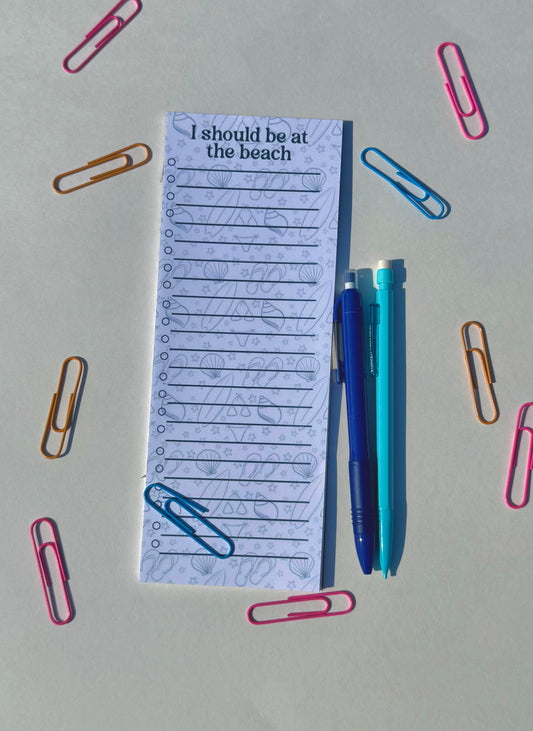 I should be at
the beach